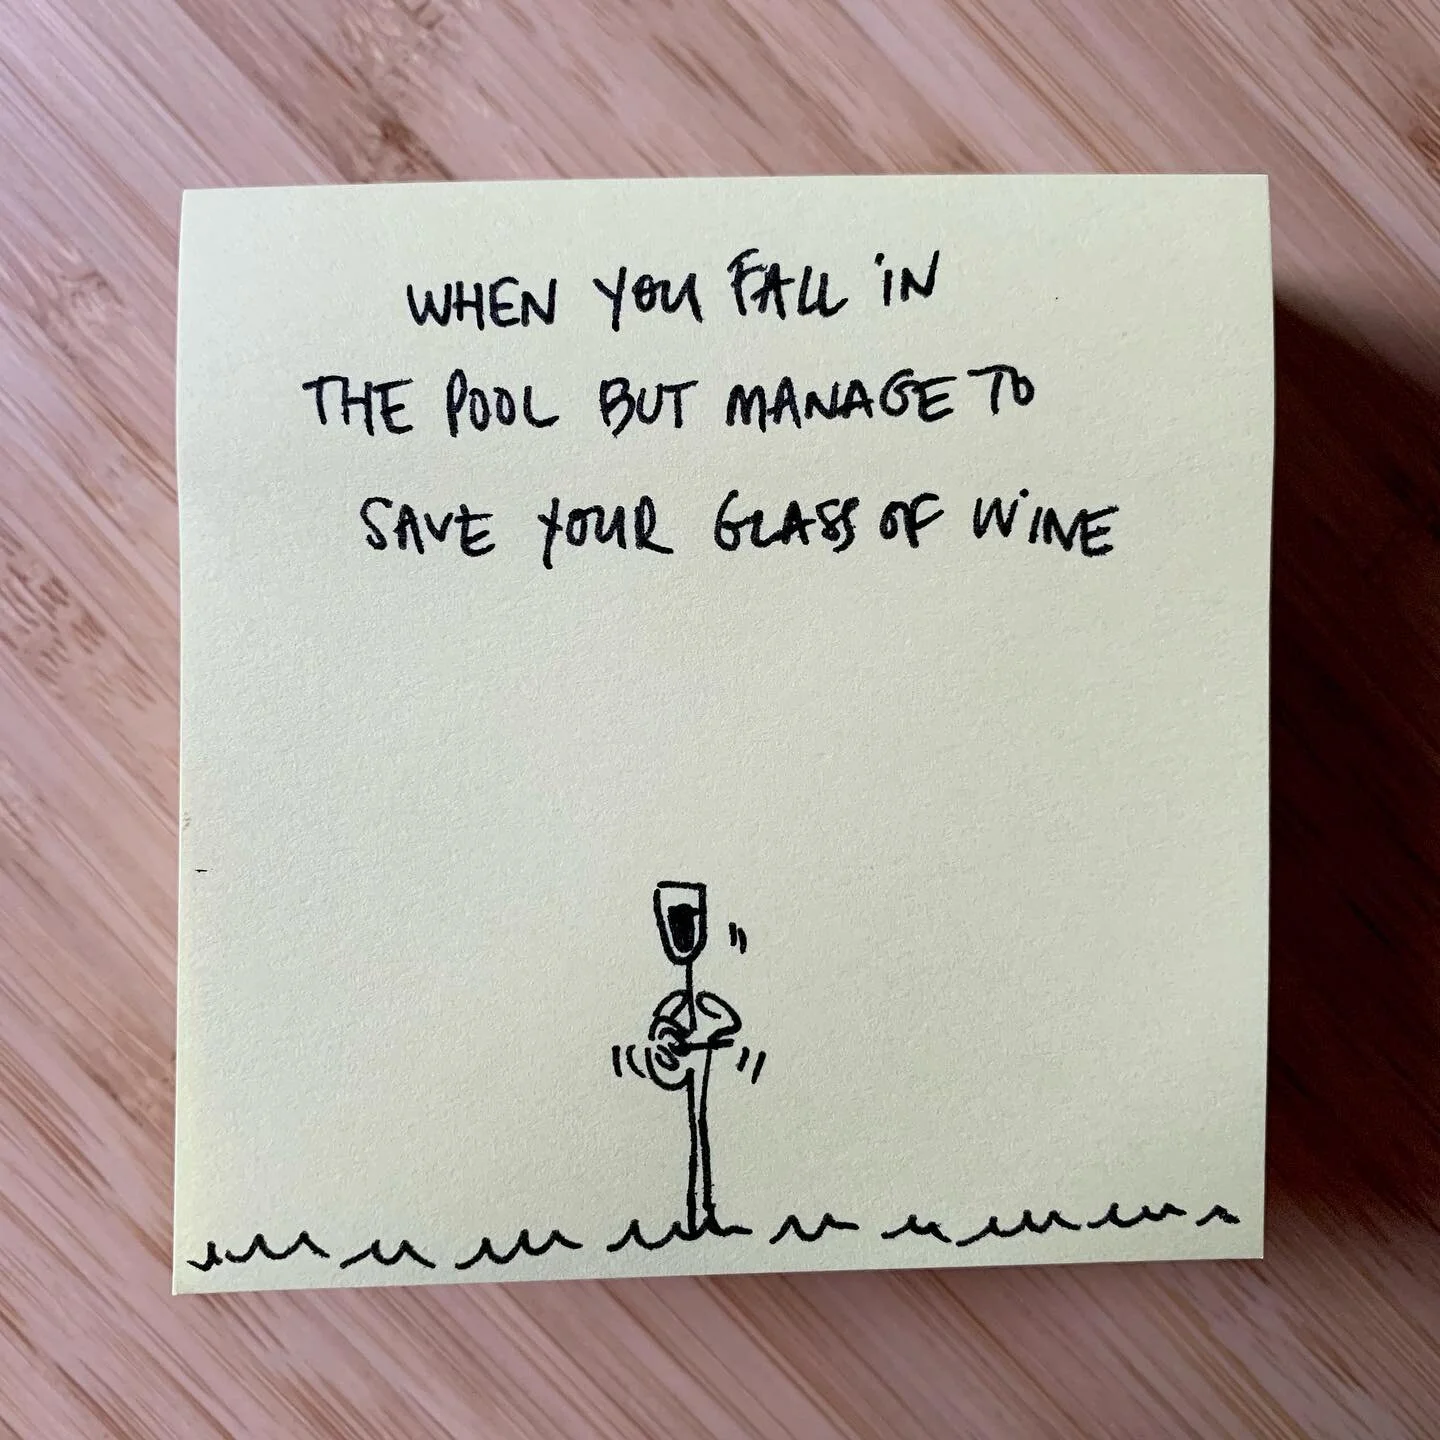 WHEN YOU FALL IN
THE POOL BUT MANAGE TO
SAVE YOUR GLASS OF WINE